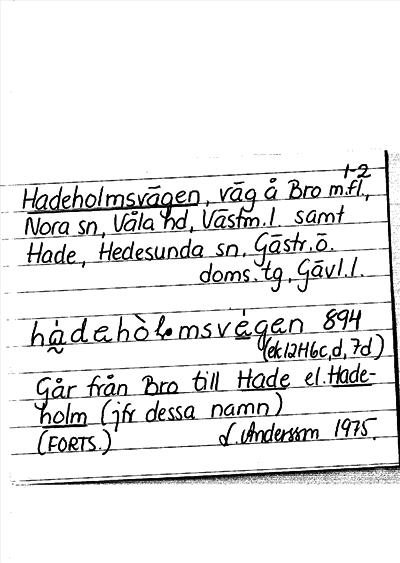 1-2
Hadeholmsvägen, väg å Bro m.fl.,
Nora sn, Våla hd, Västm.l. samt
Hade, Hedesunda sn, Gästr.ö.
doms.tg, Gävl.l.
hàdehòlmsvé̱gen 894
(ek12H6c,d,7d)
Går från Bro till Hade el. Hade-
holm (jfr dessa namn)
(FORTS.) L. Andersson 1975.